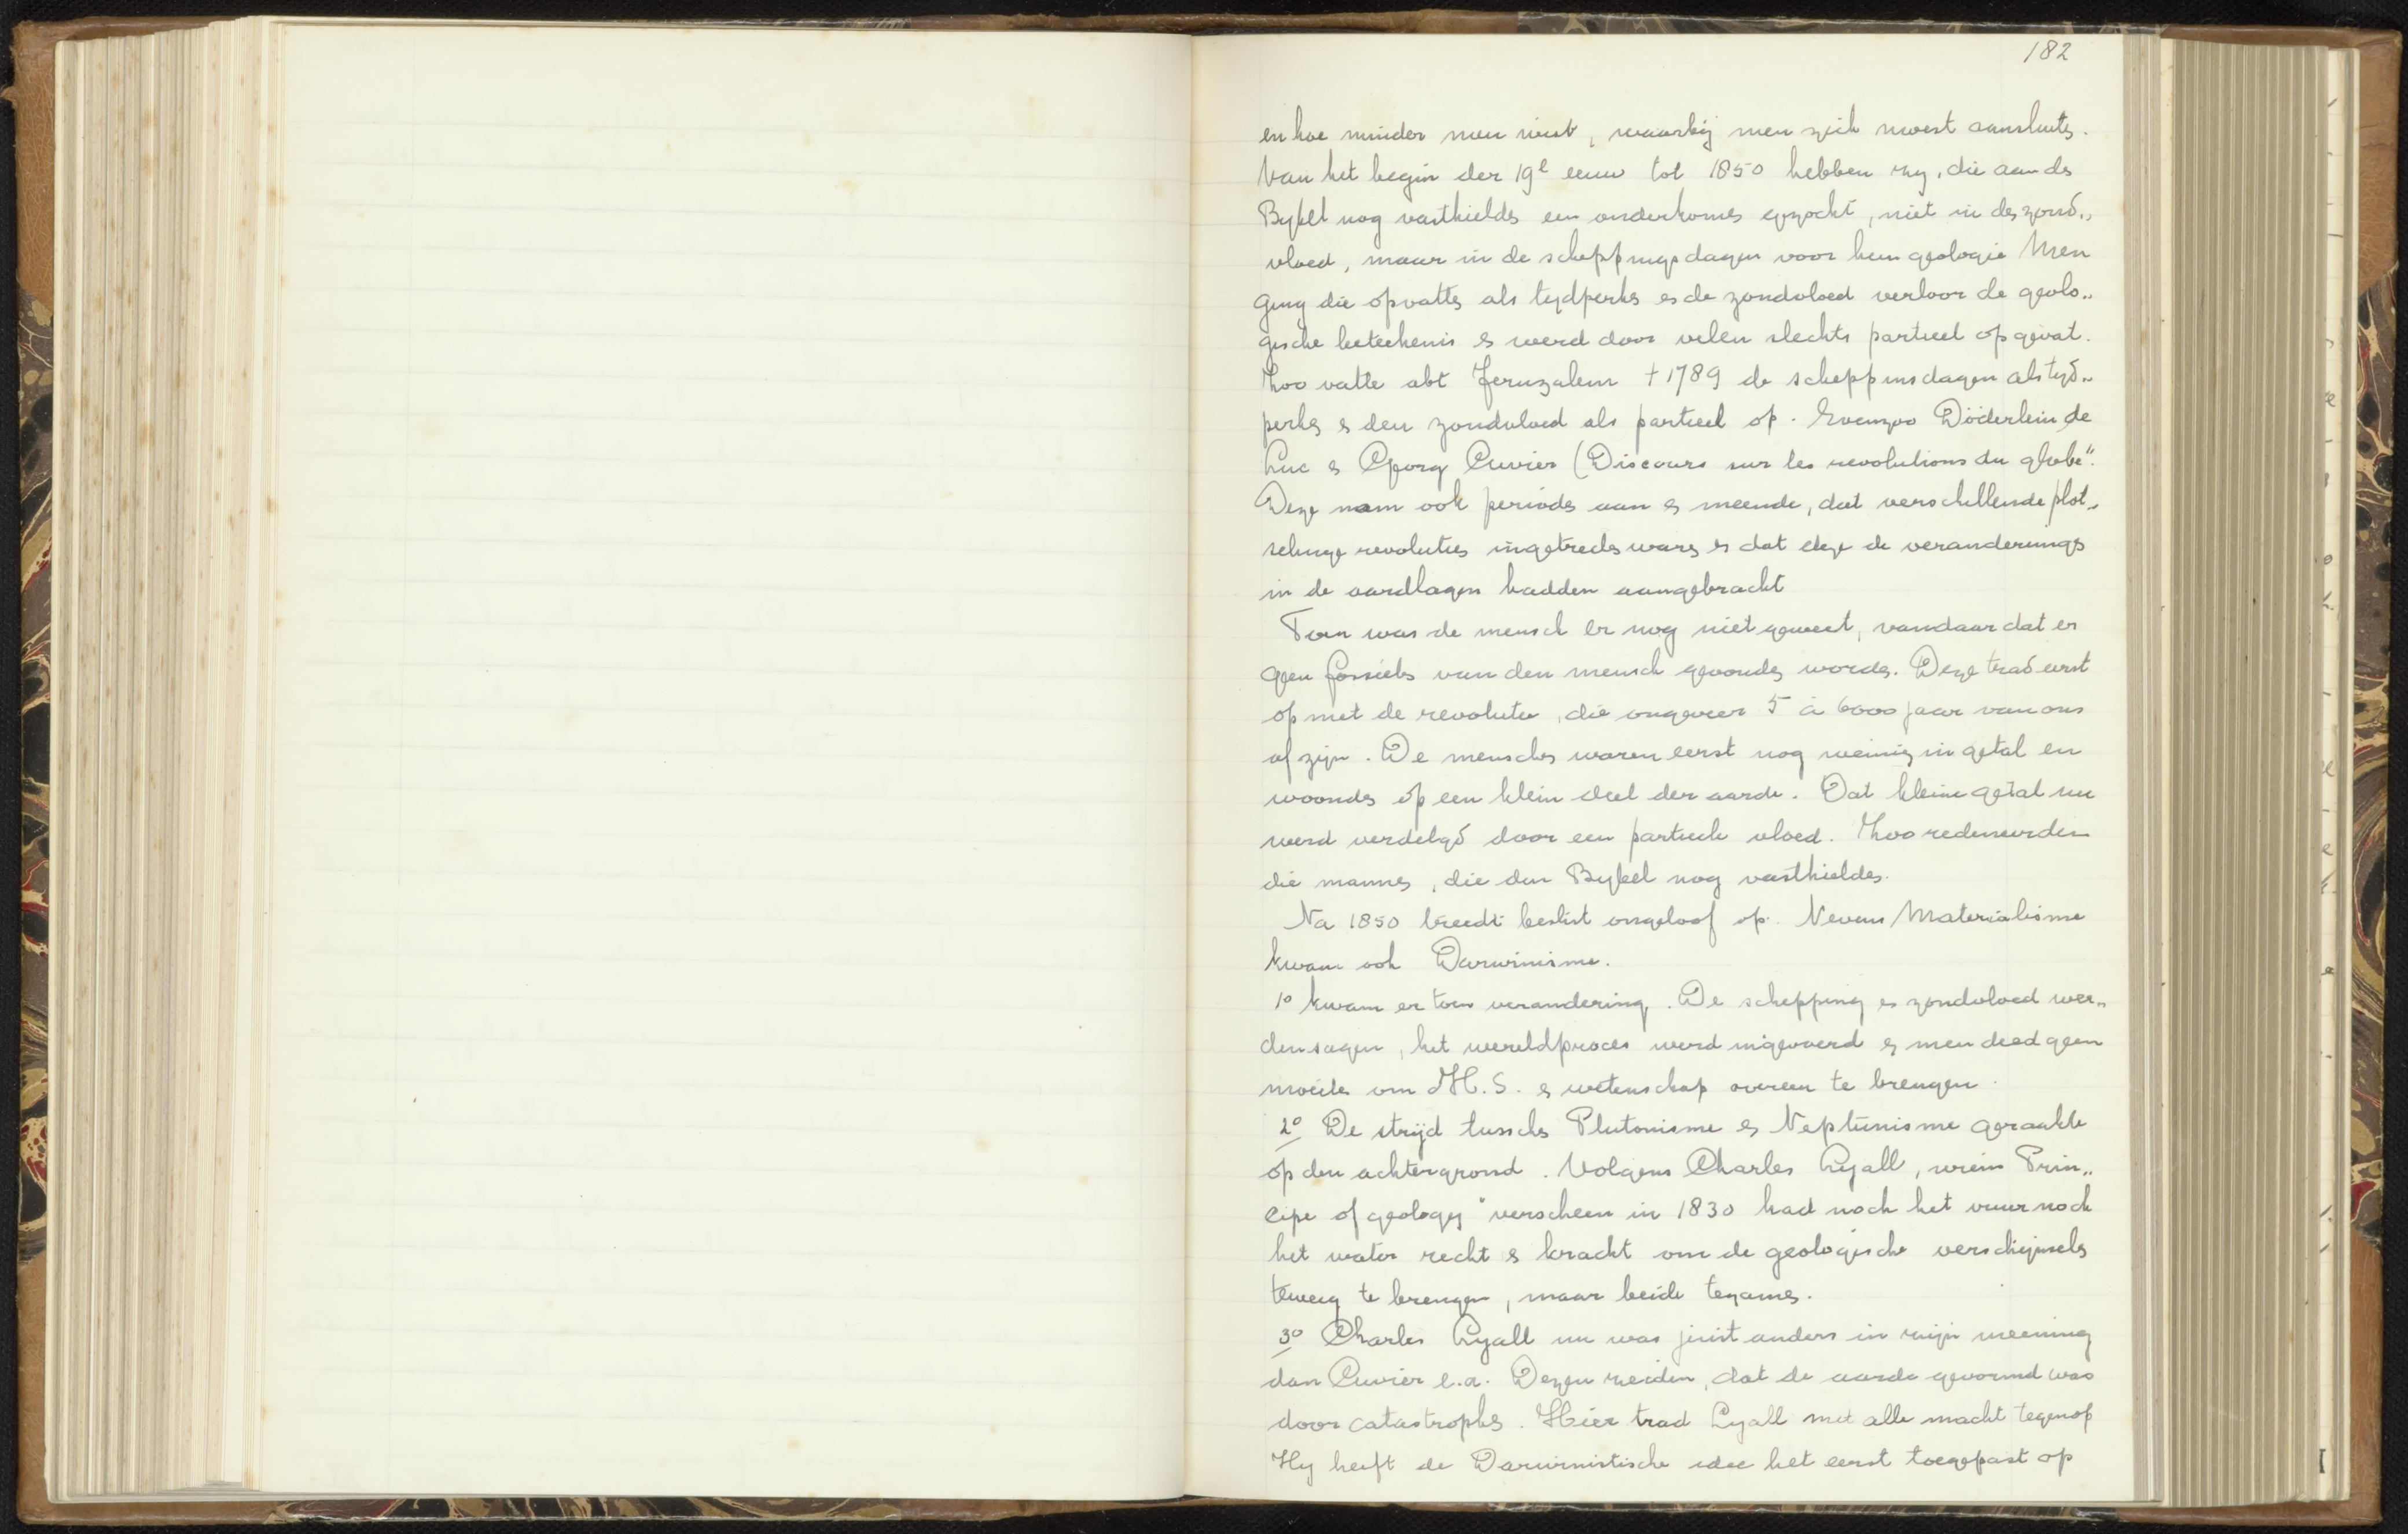 182
en hoe minder men wist, waarbij men zich moest aansluiten.
Van het begin der 19e eeuw tot 1850 hebben zy, die aan de
Bybel nog vasthielden een onderkomen gezocht, niet in den zond„
vloed, maar in de scheppingsdagen voor hun geologie Men
ging die opvatten als tydperken en de zondvloed verloor de geolo„
gische beteekenis en werd door velen slechts partieel opgevat.
Zoo vatte abt Jeruzalem † 1789 de scheppinsdagen als tyd„
perken en den zondvloed als partieel op. Evenzoo Döderlein, de
Luc en Georg Cuvier (Discours sur les revolutions du globe".
Deze nam ook perioden aan en meende, dat verschillende plot„
selinge revoluties ingetreden waren en dat deze de veranderingen
in de aardlagen hadden aangebracht
Toen was de mensch er nog niet geweest, vandaar dat er
geen fossielen van den mensch gevonden worden. Deze trad eerst
op met de revolutie, die ongeveer 5 à 6000 jaar van ons
af zijn. De menschen waren eerst nog weinig in getal en
woonden op een klein deel der aarde. Dat kleine getal nu
werd verdelgd door een partieele vloed. Zoo redeneerden
die mannen, die den Bybel nog vasthielden.
Na 1850 treedt beslist ongeloof op. Nevens Materialisme
kwam ook Darwinisme.
1o kwam er toen verandering. De schepping en zondvloed wer„
den sagen, het wereldproces werd ingevoerd en men deed geen
moeite om H.S. en wetenschap overeen te brengen.
2o De strijd tusschen Plutonisme en Neptunisme geraakte
op den achtergrond. Volgens Charles Lyall, wiens Prin„
cipe of geology" verscheen in 1830 had noch het vuur noch
het water recht en kracht om de geologische verschijnselen
teweeg te brengen, maar beide tezamen.
3o Charles Lyall nu was juist anders in zijn meening
dan Cuvier e.a. Dezen zeiden, dat de aarde gevormd was
door catastrophen. Hier trad Lyall met alle macht tegenop
Hy heeft de Darwinistische idee het eerst toegepast op